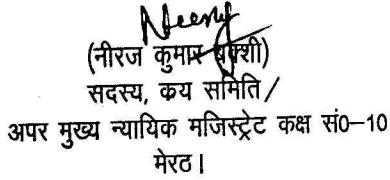 (नीरज कुमार बक्शी)
सदस्य, कय समिति /
अपर मुख्य न्यायिक मजिस्ट्रेट कक्ष सं0-10
मेरठ।